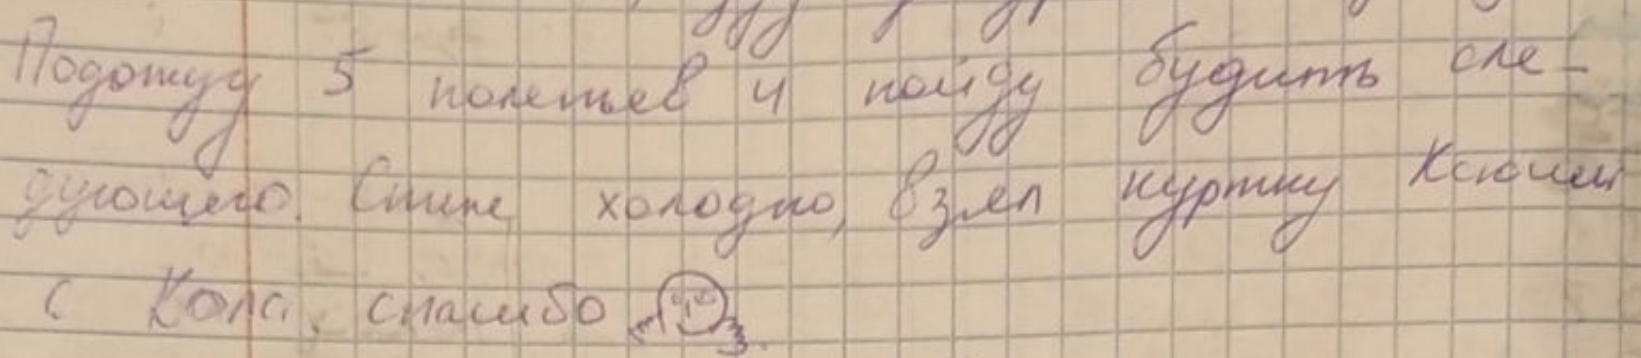 Подожду 5 поленьев и пойду будить сле-
дующего. Спине холодно, взял куртку Ксюши
с Кола, спасибо